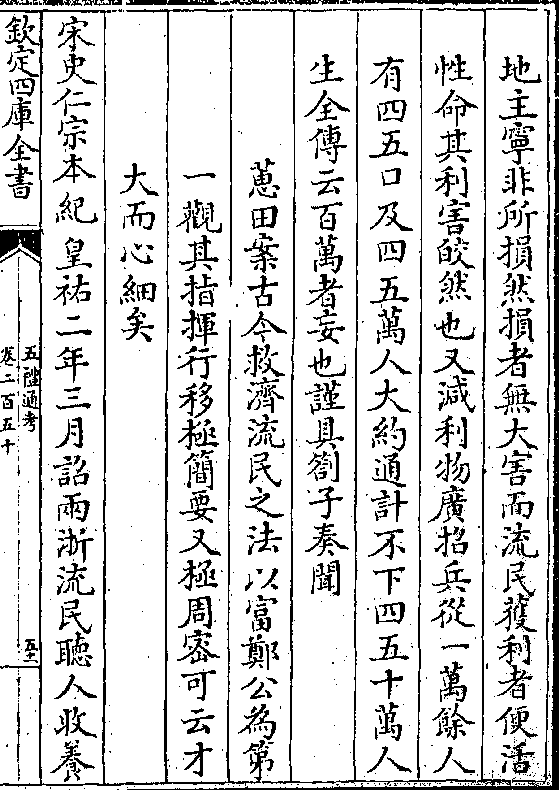 地主寧非所損然損者無大害而流民獲利者便活
性命其利害皎然也又減利物廣招兵從一萬餘人
有四五口及四五萬人大約通計不下四五十萬人
生全傳云百萬者妄也謹具劄子奏聞
蕙田案古今救濟流民之法以富鄭公為第
一觀其指揮行移極簡要又極周密可云才
大而心細矣
宋史仁宗本紀皇祐二年三月詔兩浙流民聽人收養
欽定四庫全書
五禮通考
卷二百五十